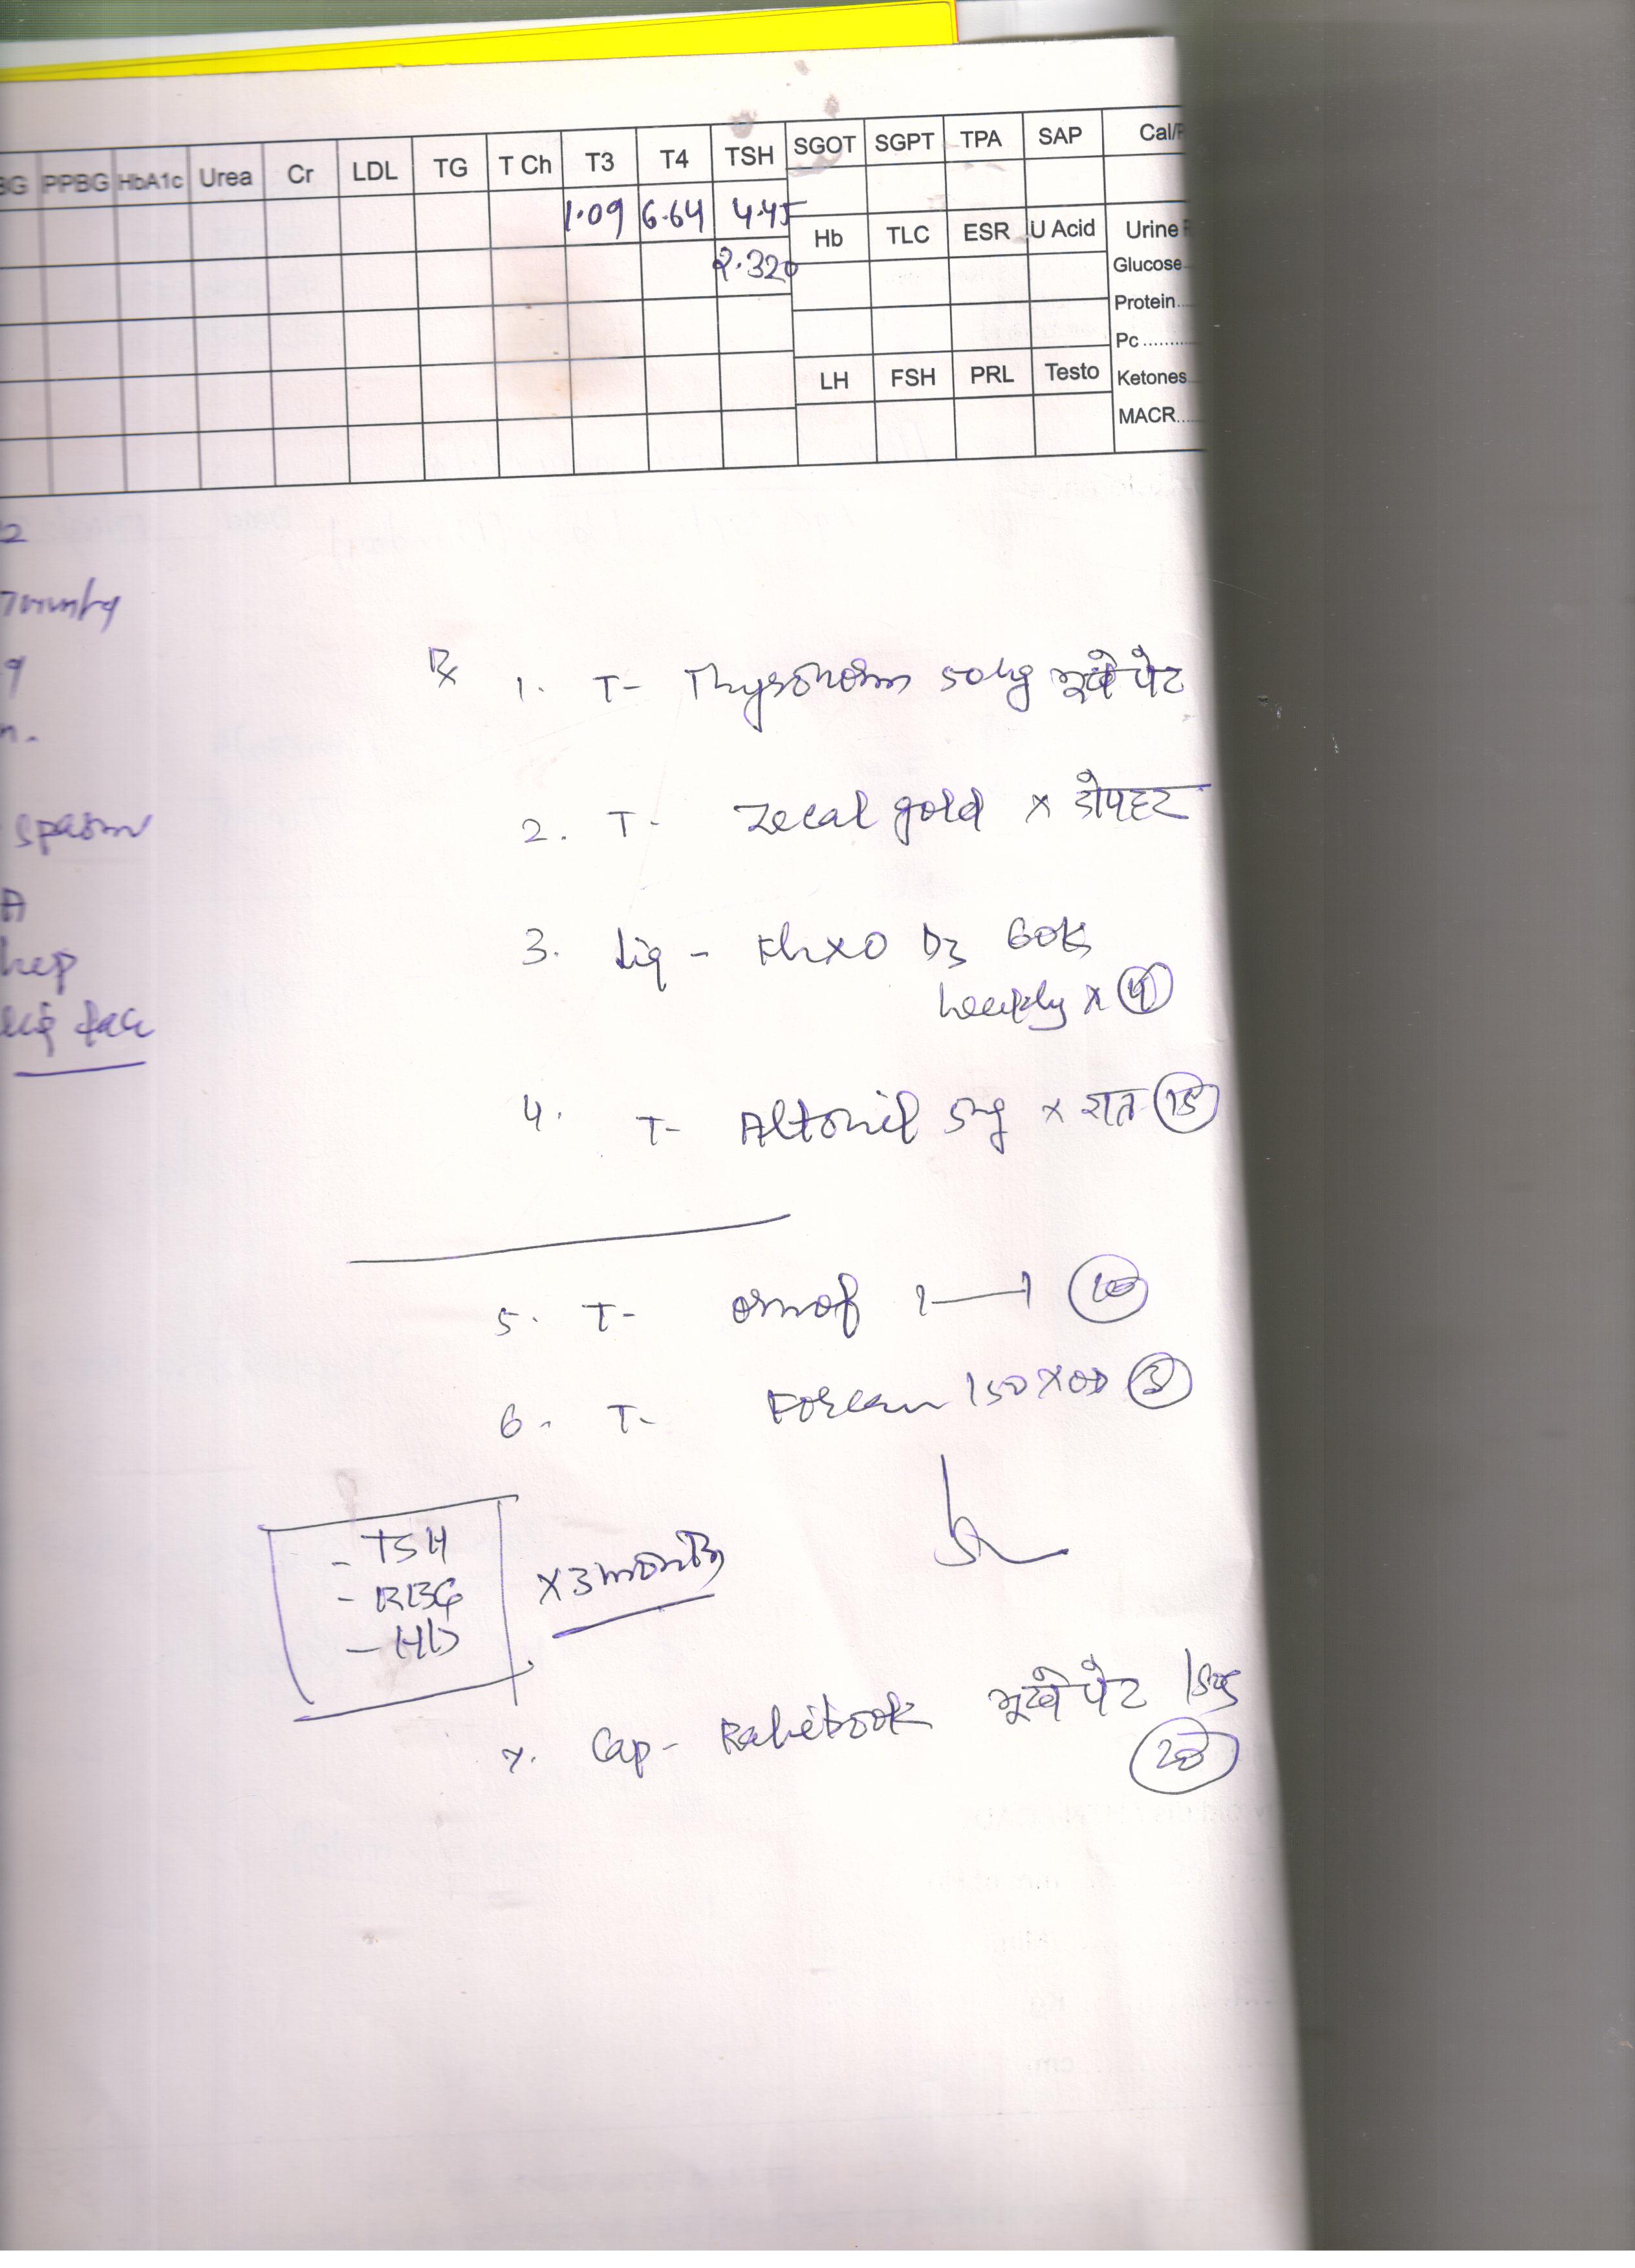 BG PPBG HbA1c Urea Cr LDL TG T Ch T3 T4 TSH SGOT SGPT TPA SAP Cal/P
1.09 6.64 4.45
Hb TLC ESR U Acid Urine R
2.320
Glucose
Protein
Pc
LH FSH PRL Testo Ketones
MACR
2
spasm
A
hep
Rx 1. T- Thyronorm 50 भूखे पेट
2. T- Zecal gold x दोपहर
3. Liq - D3 60K
weekly x 4
4. T- Altonil 5mg x रात 15
5. T- ornof 1—1 10
6. T- Forcan 150 x OD 3
- TSH
- RBG
- Hb
x 3 months
7. Cap- भूखे पेट
20